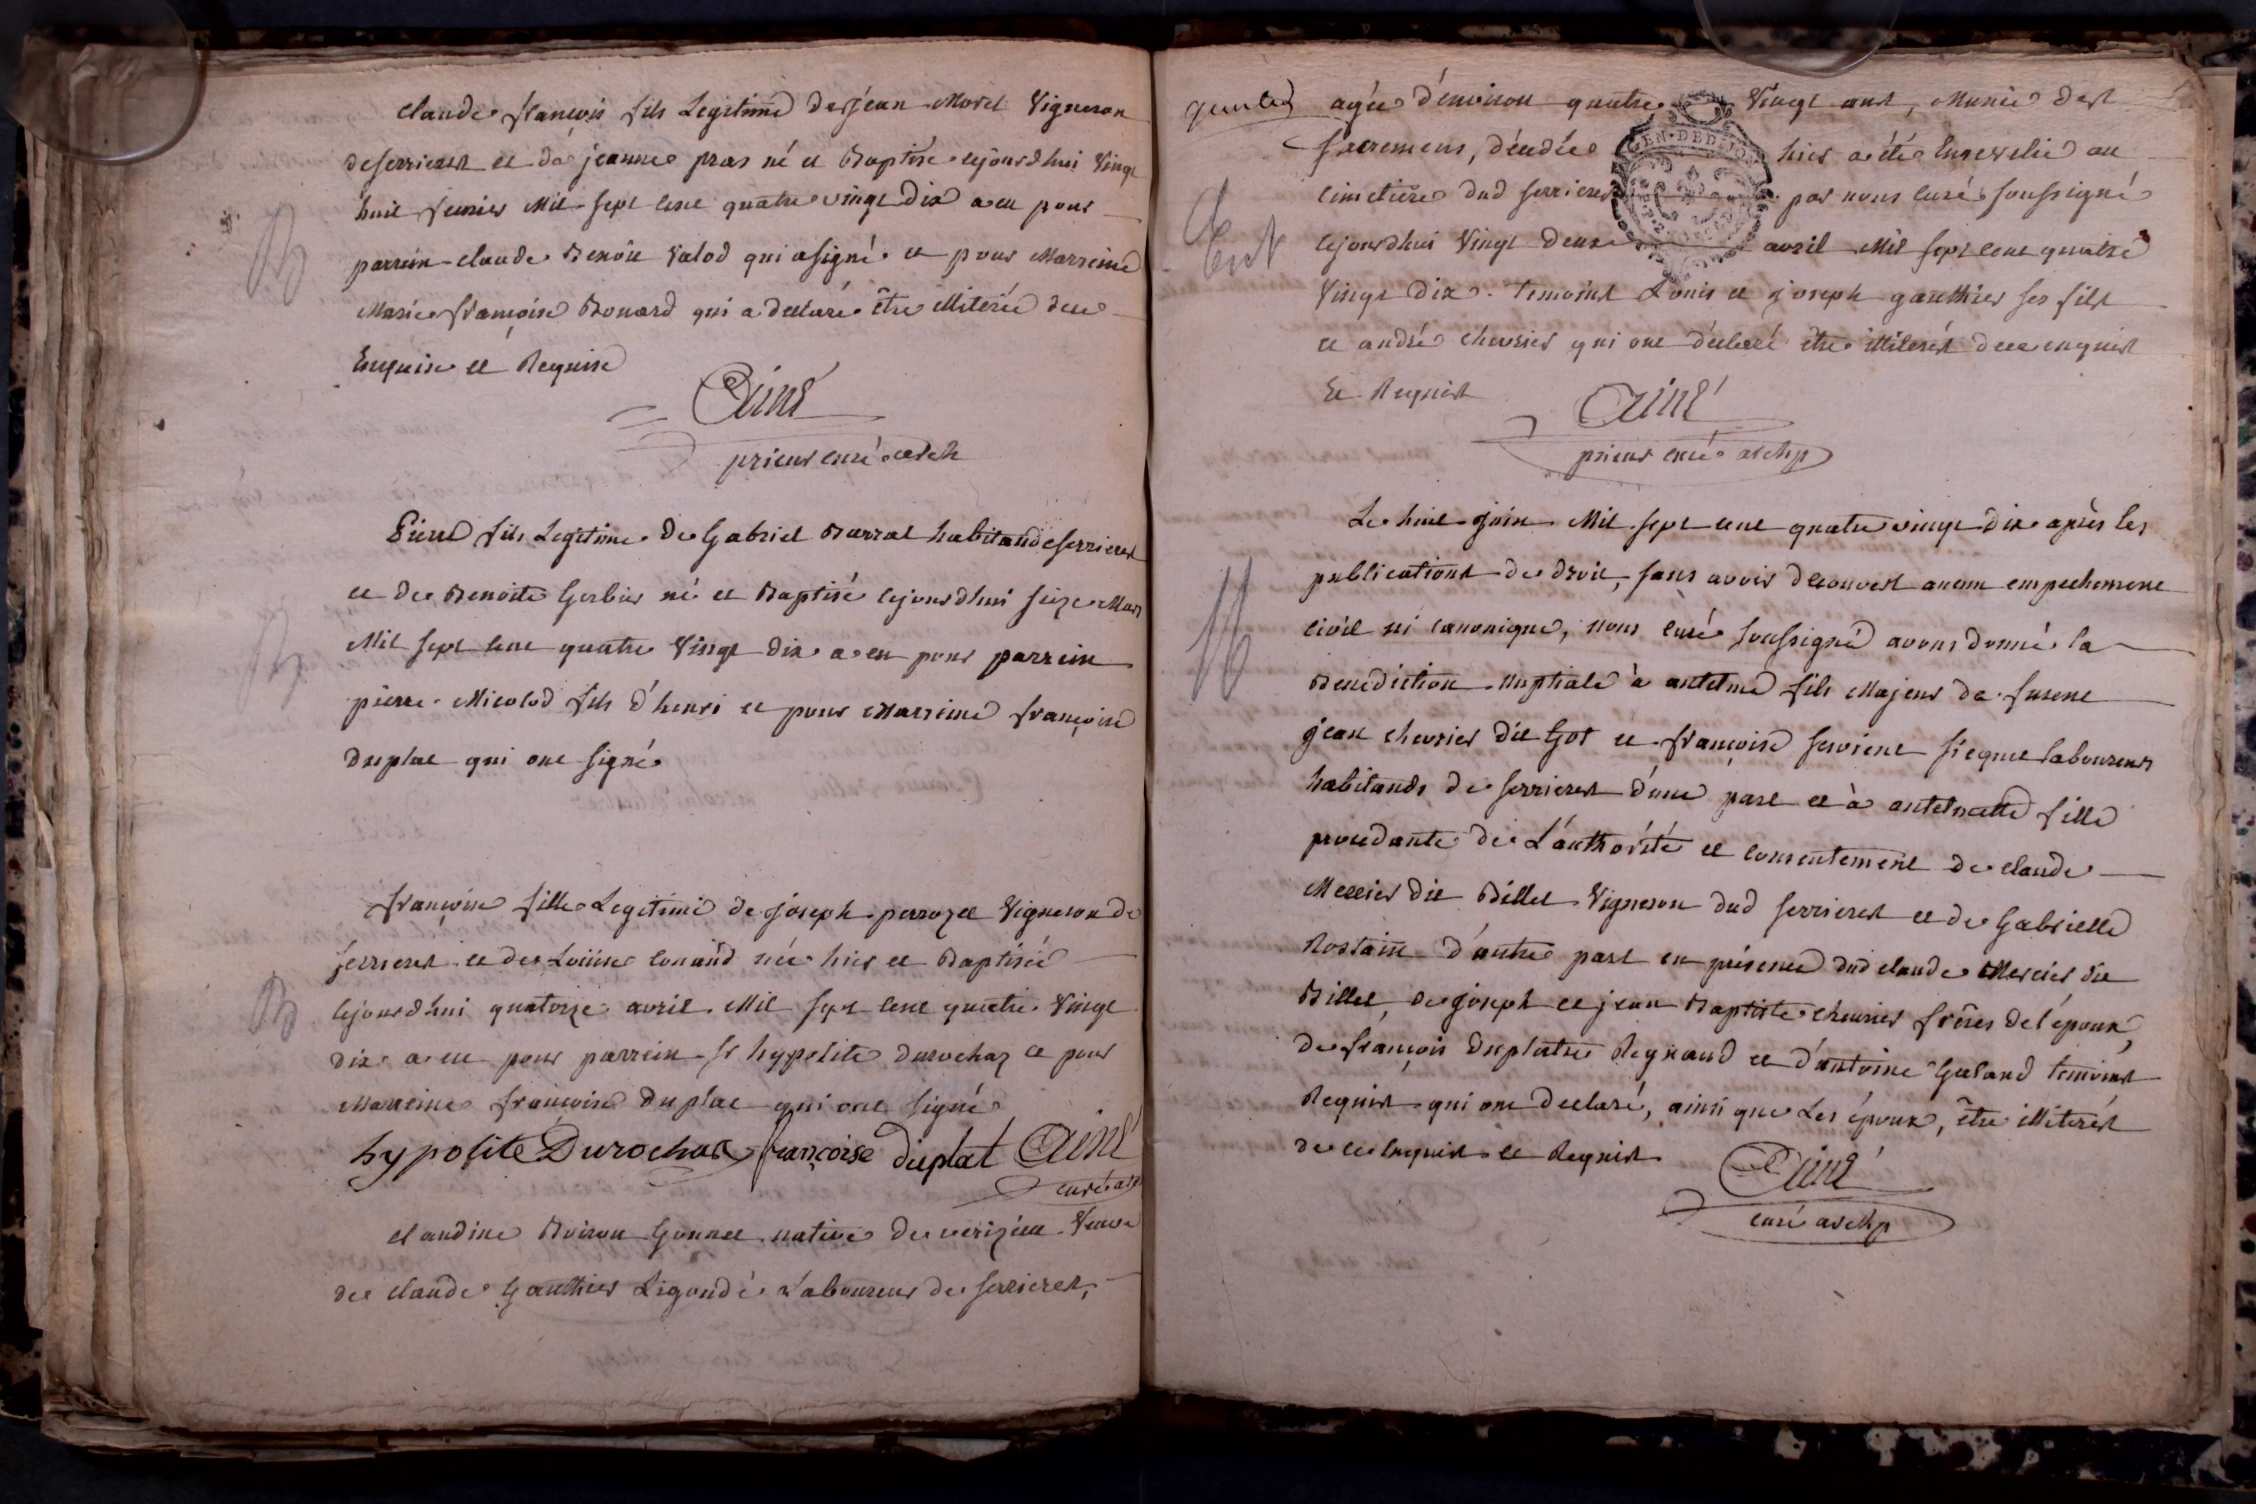 claude françois fils Legitime de jean Morel Vigneron
deserrieres et de jeanne pras né et Baptisé cejourdhui Vingt
huit fevrier Mil sept cent quatre vingt Dix a eu pour
parrein claude Benoit Valod qui a signé et pour Marreine
Marie françoise Bonard qui a declaré être illiterée dece
Enquise et Requise
Ainé
prieur curé arch
Pierre fils Legitime De Gabriel Barral habitand deserrieres
et de Benoite Gerbier né et Baptisé cejourdhui seize Mars
Mil sept cent quatre Vingt dix a eu pour parrein
pierre Micolod fils d'henri et pour Marreine françoise
duplat qui ont signé
françoise fille Legitime de joseph perrozet Vigneron de
serrieres et de Louise Conand née hier et Baptisée
cejourdhui quatorze avril Mil sept cent quatre Vingt
dix a eu pour parrein sr hypolite durochaz et pour
Marreine françoise duplat qui ont signé
hypolite Durochat françoise duplat Ainé
curé arc
claudine Boiron Gonnet native de verizieu Veuve
de claude Gauthier Ligoudé Laboureur de serrieres,
agée d'environ quatre Vingt ans, Munie des
sacremens, décedée hier a été Ensevelie au
cimetiere dud serrieres par nous curé soussigné
cejourdhui Vingt deux avril Mil sept cent quatre
Vingt Dix. temoins Louis et joseph gauthier ses fils
et andré chevrier qui ont déclaré être illiterés dece enquis
Et Requis
Ainé
prieur curé archp
Le huit juin Mil sept cent quatre vingt dix après les
publications de droit, sans avoir decouvert aucun empechement
civil ni canonique, nous curé soussigné avons donné la
Benediction Nuptiale à antelme fils Majeur de furent
jean chevrier dit Got et françoise servient laboureur
habitands de serrieres d'une part et à antelmette fille
procedante de L'authorité et consentement de claude
Mercier dit Billet Vigneron dud serrieres et de Gabrielle
Rostain d'autre part en présence dud claude Mercier dit
Billet, de joseph et jean Baptiste chevrier frères de l'époux,
de françois duplatre Reynaud et d'antoine Guland temoins
Requis qui ont declaré, ainsi que Les époux, être illiterés
de ce Enquis et Requis
Ainé
curé archp